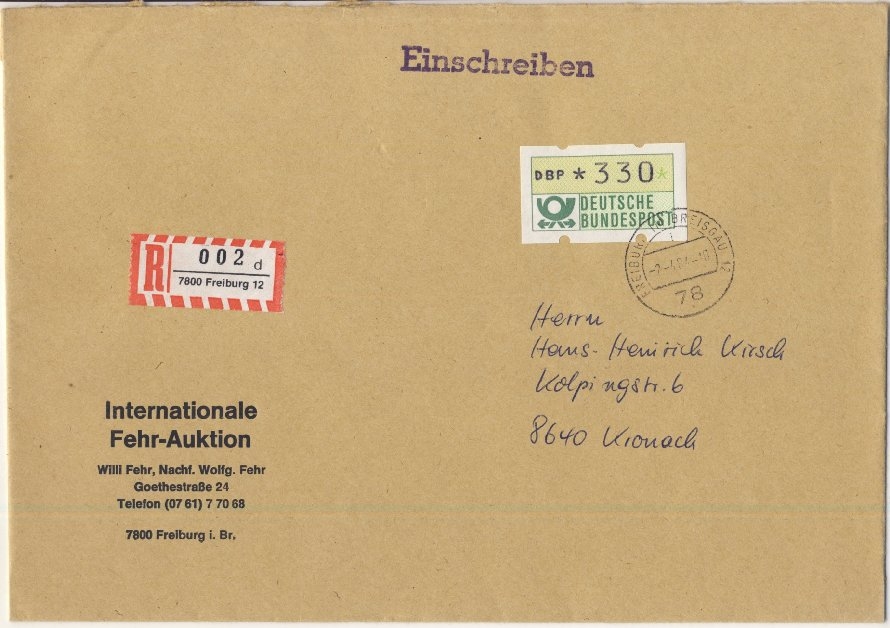 Einschreiben
DBP *330*
DEUTSCHE
BUNDESPOST
FREIBURG IM BREISGAU 12
78
R
002 d
7800 Freiburg 12
Herrn
Hans-Heinrich Kirsch
Kolpingstr. 6
8640 Kronach
Internationale
Fehr-Auktion
Willi Fehr, Nachf. Wolfg. Fehr
Goethestraße 24
Telefon (07 61) 7 70 68
7800 Freiburg i. Br.